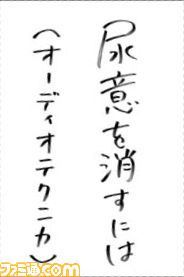 尿意を消すには
（オーディオテクニカ）
ファミ通.com